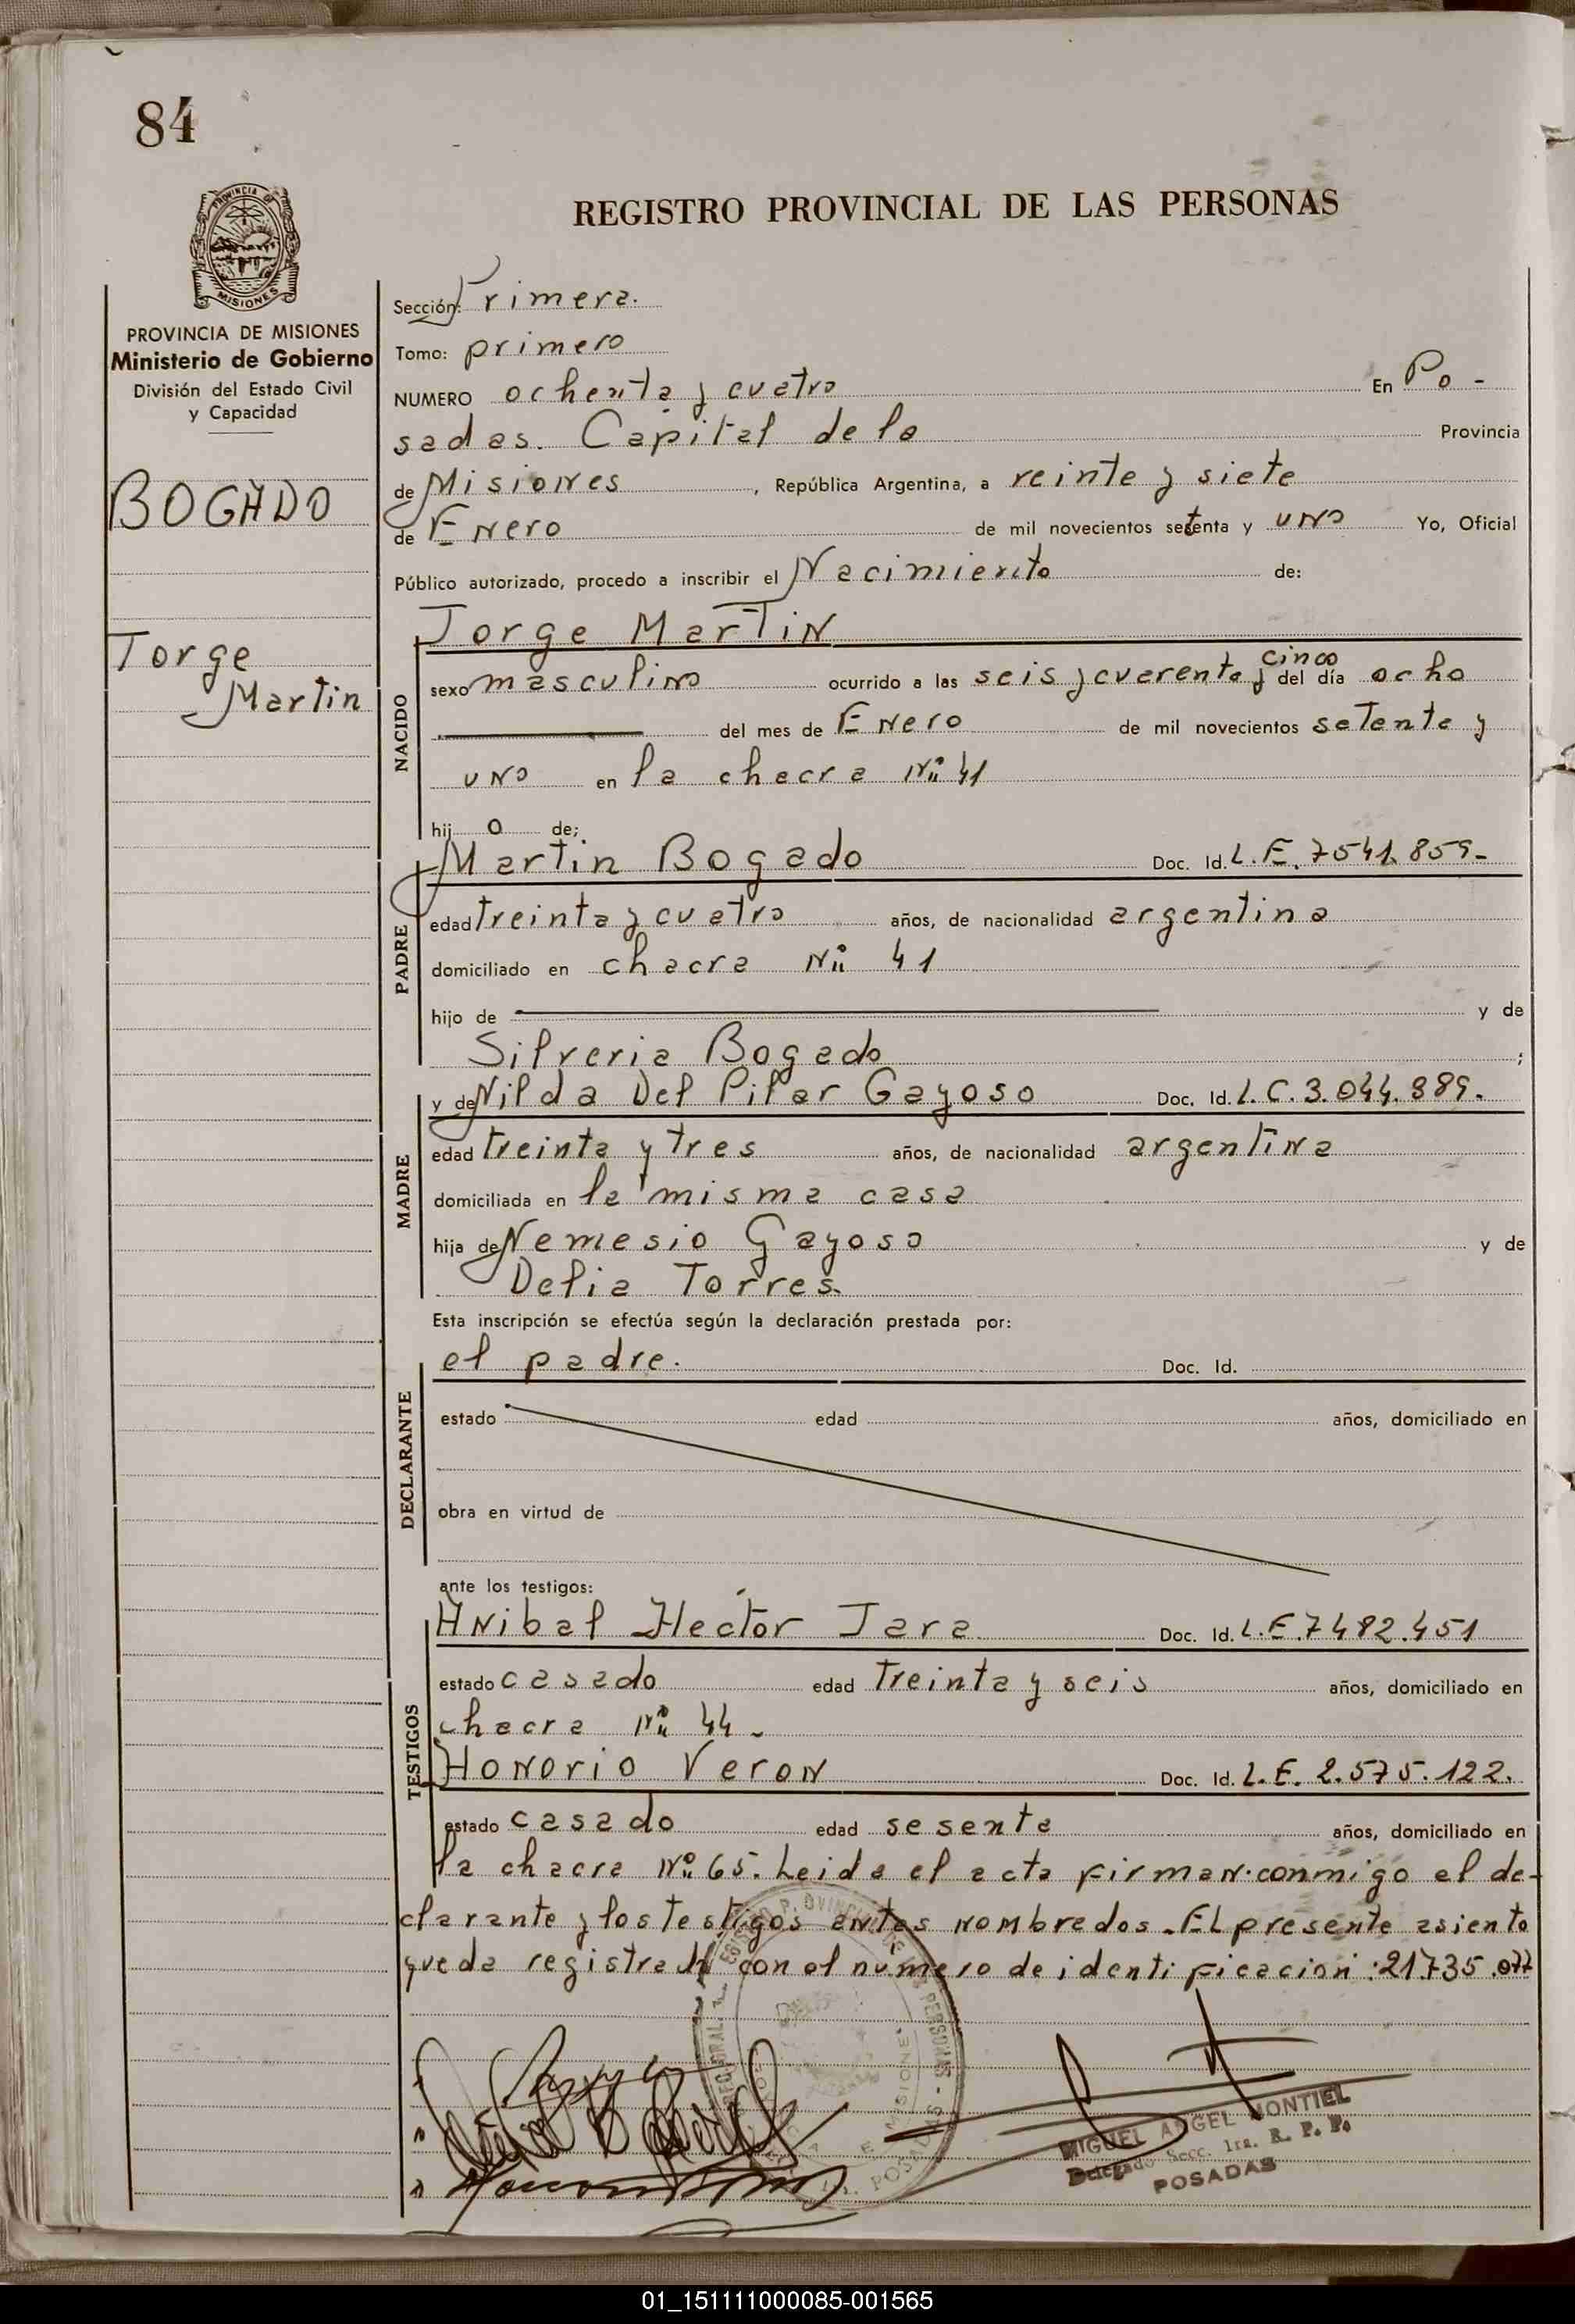 84
PROVINCIA DE
MISIONES
REGISTRO PROVINCIAL DE LAS PERSONAS
PROVINCIA DE MISIONES
Ministerio de Gobierno
División del Estado Civil
y Capacidad
BOGADO
Jorge
Martin
Sección: Primera.
Tomo: primero
NUMERO ochenta y cuatro En Po-
sadas. Capital de la Provincia
de Misiones, República Argentina, a veinte y siete
de Enero de mil novecientos setenta y uno Yo, Oficial
Público autorizado, procedo a inscribir el Nacimiento de:
NACIDO
Jorge Martin
sexo masculino ocurrido a las seis y cuarenta y cinco del día ocho
del mes de Enero de mil novecientos setenta y
uno en la chacra Nº 41
hijo de;
PADRE
Martin Bogado Doc. Id. L.E. 7541.859-
edad treinta y cuatro años, de nacionalidad argentina
domiciliado en chacra Nº 41
hijo de y de
Silveria Bogado ;
MADRE
y de Nilda Del Pilar Gayoso Doc. Id. L.C. 3.044.889.
edad treinta y tres años, de nacionalidad argentina
domiciliada en la misma casa
hija de Nemesio Gayoso y de
Delia Torres.
Esta inscripción se efectúa según la declaración prestada por:
DECLARANTE
el padre. Doc. Id.
estado edad años, domiciliado en
obra en virtud de
ante los testigos:
TESTIGOS
Anibal Hector Jara Doc. Id. L.E. 7482.451
estado casado edad treinta y seis años, domiciliado en
chacra Nº 44-
Honorio Veron Doc. Id. L.E. 2.575.122.
estado casado edad sesenta años, domiciliado en
la chacra Nº 65. Leida el acta firman conmigo el de-
clarante y los testigos antes nombrados. El presente asiento
queda registrado con el numero de identificacion: 21.735.077
MIGUEL ANGEL MONTIEL
Delegado Secc. 1ra. R. P. P.
POSADAS
01_151111000085-001565